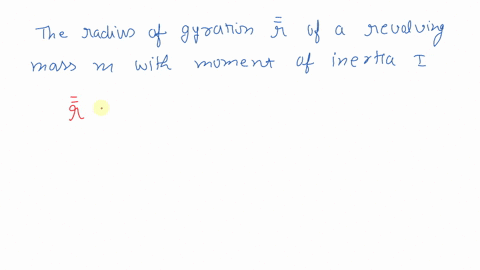 The radius of gyration r̿ of a revolving
mass m with moment of inertia I
r̿